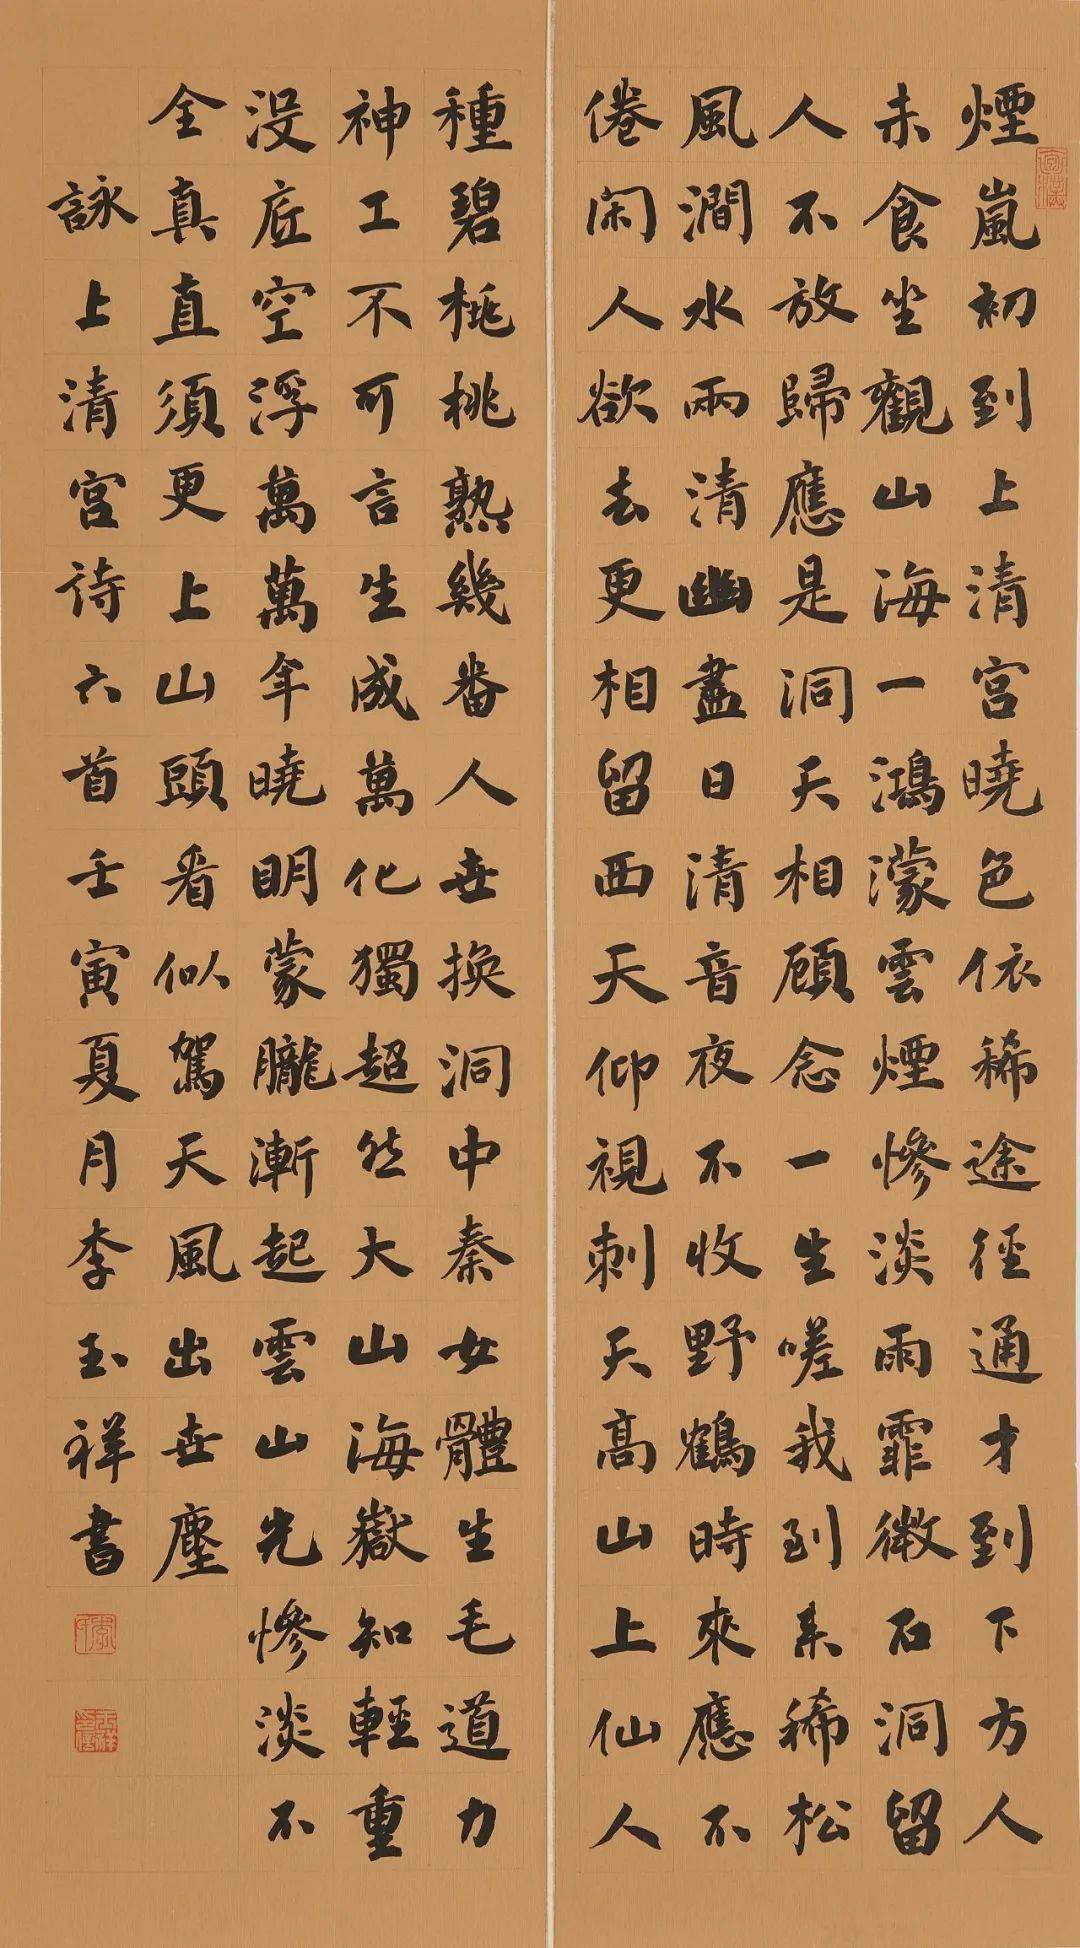 煙嵐初到上清宮曉色依稀途徑通才到下方人
未食坐觀山海一鴻濛雲煙慘淡雨霏微石洞留
人不放歸應是洞天相顧念一生嗟我到來稀松
風澗水兩清幽盡日清音夜不收野鶴時來應不
倦閑人欲去更相留西天仰視刺天高山上仙人
種碧桃桃熟幾番人世換洞中秦女體生毛道力
神工不可言生成萬化獨超然大山海嶽知輕重
没底空浮萬萬年曉明蒙朧漸起雲山光慘淡不
全真直須更上山頭看似駕天風出世塵
詠上清宮詩六首壬寅夏月李玉祥書